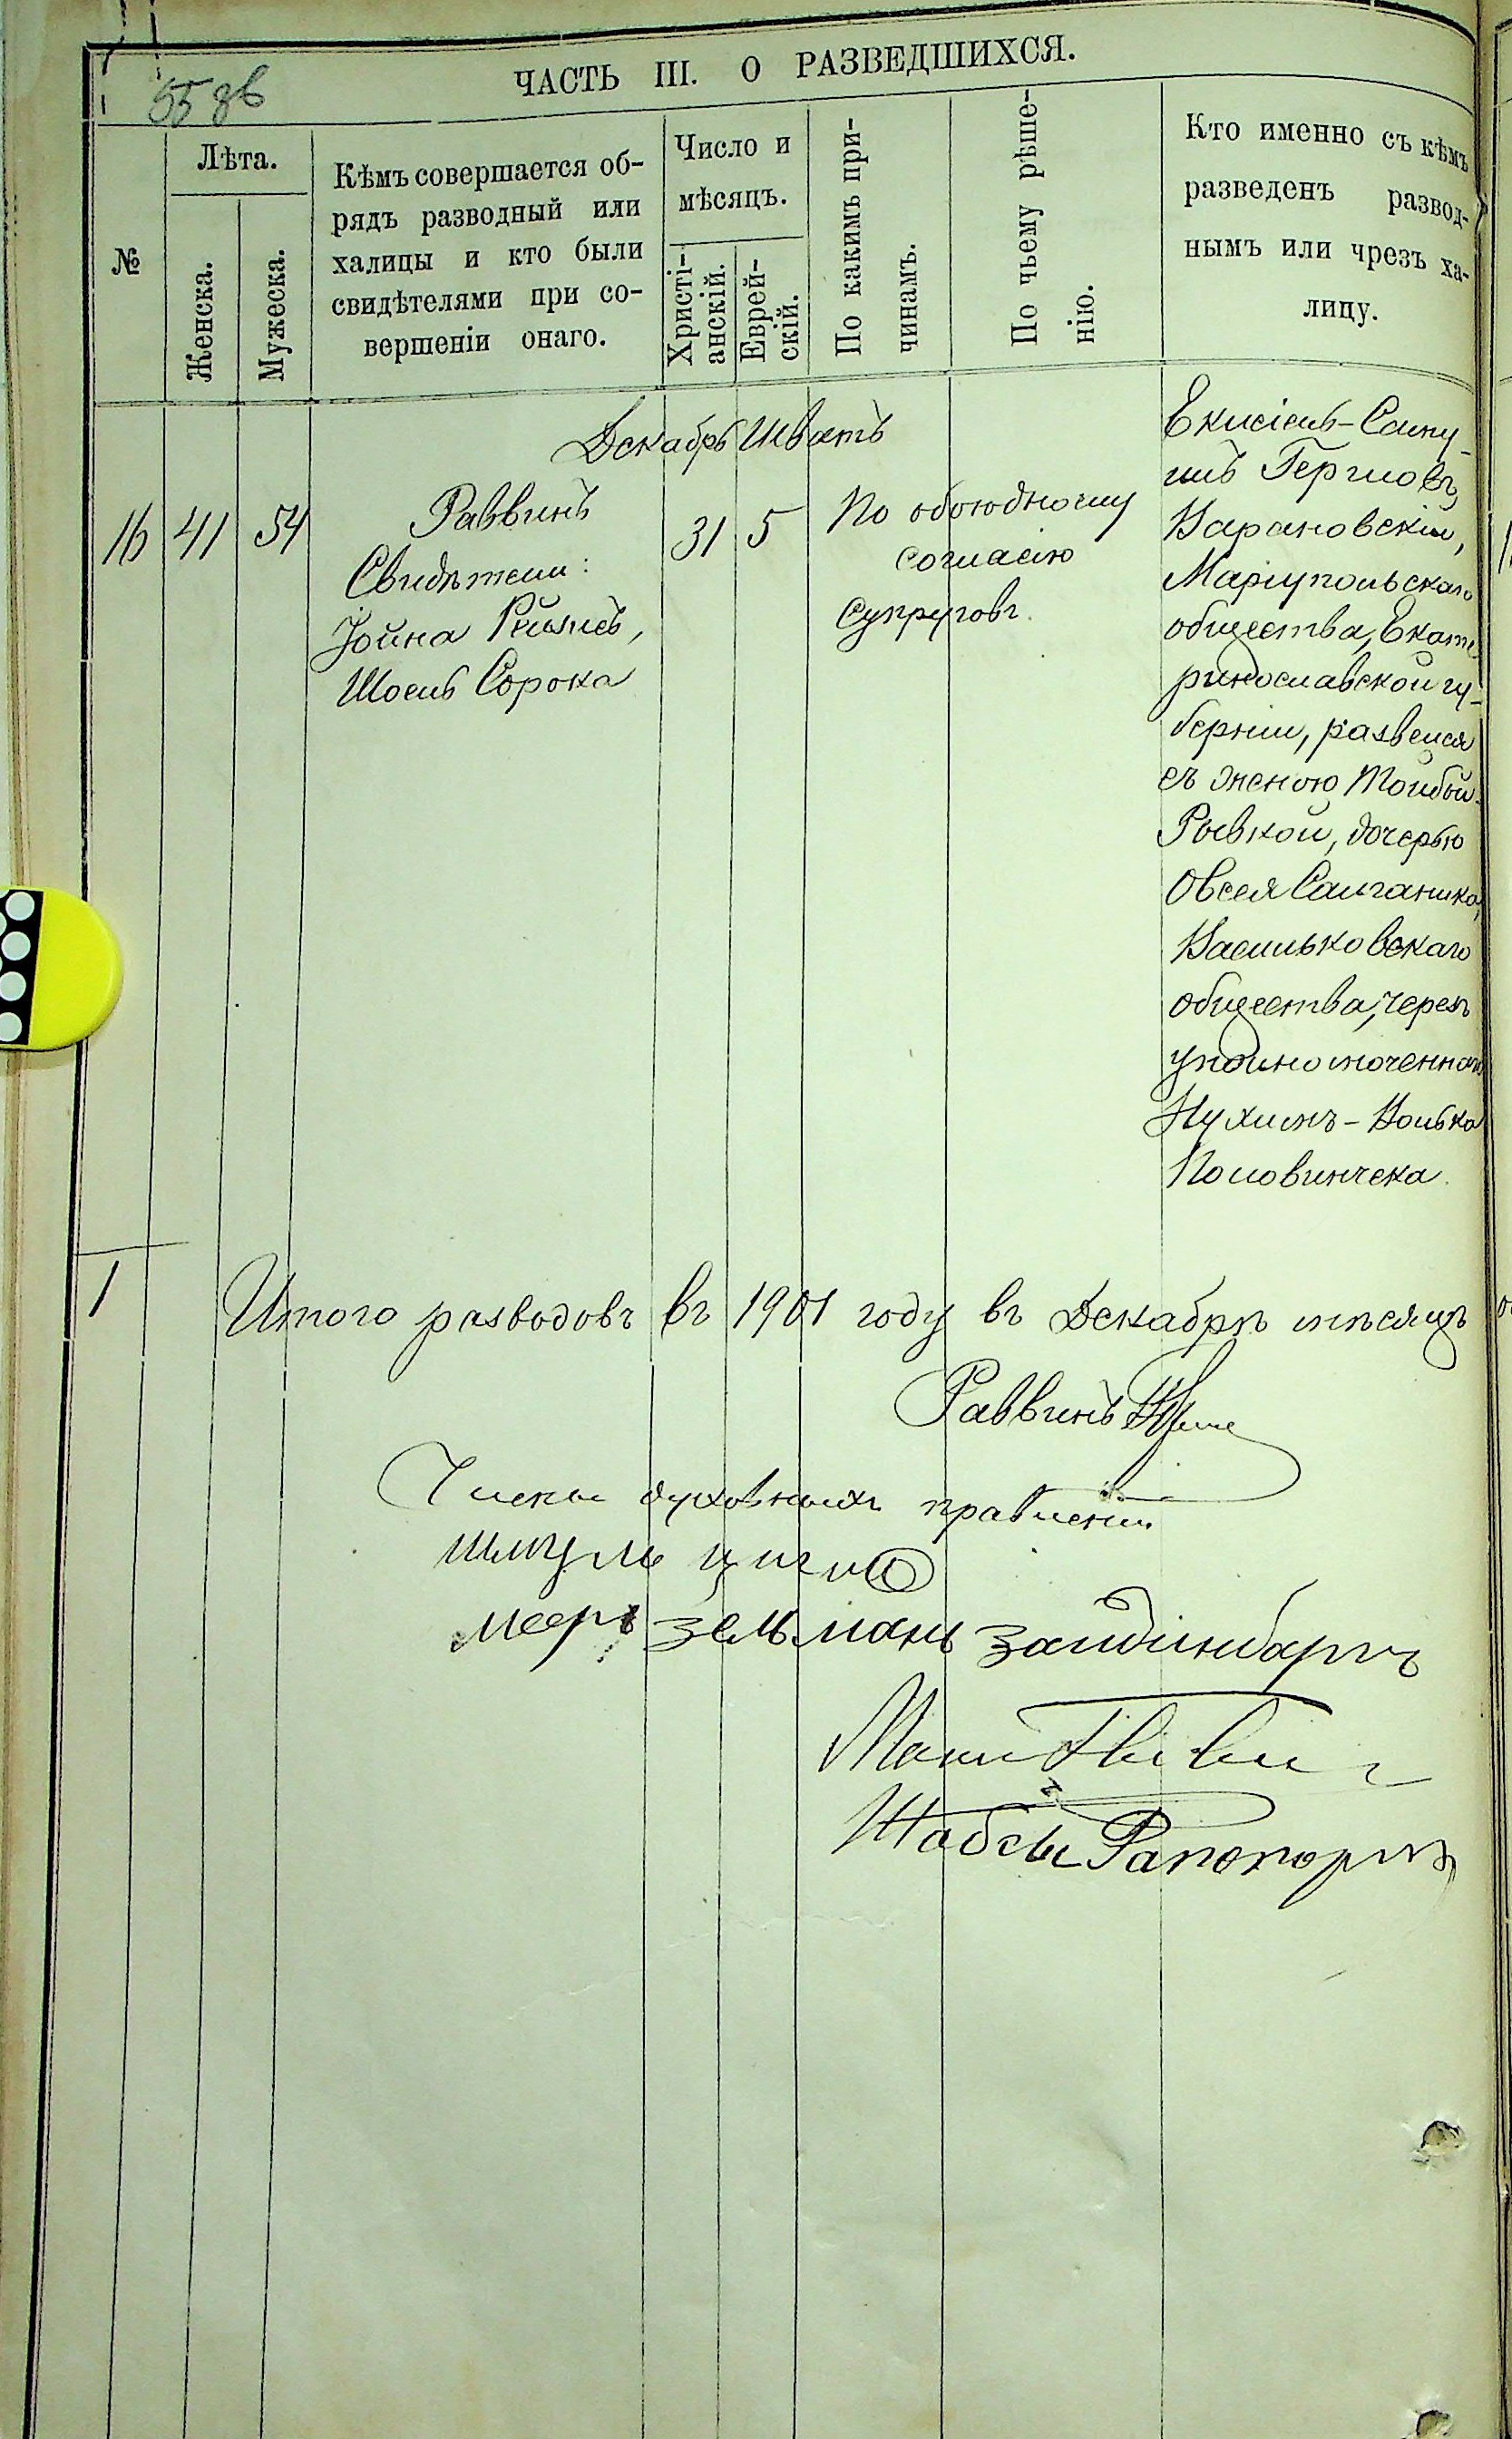 55 зв
ЧАСТЬ III. О РАЗВЕДШИХСЯ.
№
Лѣта.
Женска.
Мужеска.
Кѣмъ совершается об-
рядъ разводный или
халицы и кто были
свидѣтелями при со-
вершеніи онаго.
Число и
мѣсяцъ.
Христі-
анскій.
Еврей-
скій.
По какимъ при-
чинамъ.
По чьему рѣше-
нію.
Кто именно съ кѣмъ
разведенъ развод-
нымъ или чрезъ ха-
лицу.
Декабрь Шватъ
16 41 54
Раввинъ
Свидѣтели:
Іойна
Шоель Сорока
31 5
По обоюдному
согласію
супруговъ.
Екисіель-Саму-
илъ Гершовъ
Барановскій,
Маріупольскаго
общества, Екате-
ринославской гу-
берніи, развелся
съ женою Тойбой-
Рывкой, дочерью
Овсея Салганика,
Васильковскаго
общества, черезъ
уполномоченнаго
Нухимъ-Волька
Половинчека.
1
Итого разводовъ въ 1901 году въ Декабрѣ мѣсяцѣ
Раввинъ
Члены духовныхъ правленій
Шмуль
Мееръ Зельманъ Зайдинбаргъ
Шабсы Рапопортъ